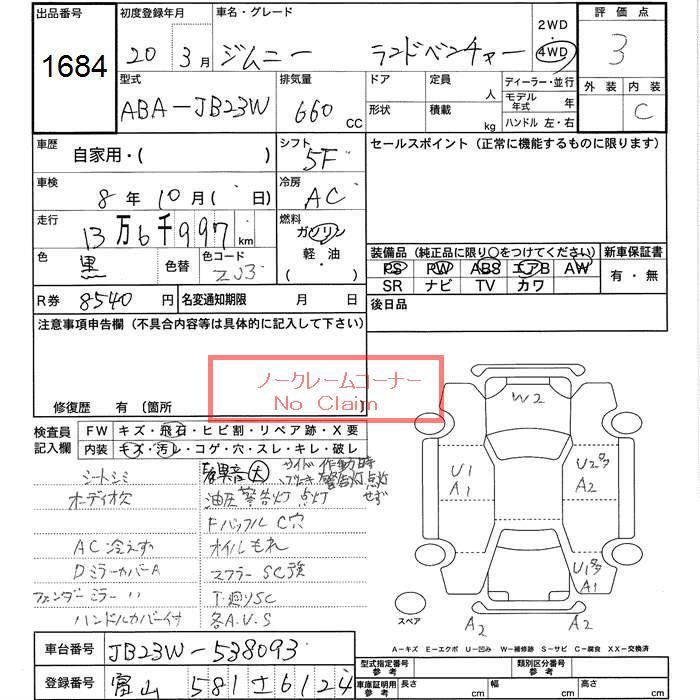 出品番号 初度登録年月 車名・グレード 2WD 評価点
1684 20 3月 ジムニー ランドベンチャー 4WD 3
型式 排気量 ドア 定員 人 ディーラー・並行 外装 内装
ABA-JB23W 660 CC 形状 積載 kg モデル年式 年 C
ハンドル 左・右
車歴 自家用・( ) シフト 5F セールスポイント(正常に機能するものに限り)
車検 8年10月( 日) 冷房 AC
走行 13万6千997km 燃料 ガソリン
色 黒 色替 色コード ZJ3 軽・油 ( )
装備品(純正品に限り○をつけてください) 新車保証書
PS PW ABS エアB AW 有・無
SR ナビ TV カワ
R券 8540円 名変通知期限 月 日 後日品
注意事項申告欄(不具合内容等は具体的に記入して下さい)
ノークレームコーナー
No Claim
修復歴 有 〔箇所
検査員記入欄 FW キズ・飛石・ヒビ割・リペア跡・X要
内装 キズ・汚レ・コゲ・穴・スレ・キレ・破レ
シートシミ 異音大 サイドブレーキ作動時警告灯点灯せず
オーディオ欠 油圧警告灯点灯
FバッフルC穴
AC冷えず オイルもれ
DミラーカバーA マフラーSC強
フェンダーミラー 〃 下廻りSC
ハンドルカバー付 各A.U.S
W2
U1 A1
U2多 A2
U1多 A1
A2 A2
スペア
A-キズ E-エクボ U-凹み W-補修跡 S-サビ C-腐食 XX-交換済
車台番号 JB23W-538093
登録番号 富山 581 も 6124
型式指定番号 参考 類別区分番号 参考
車庫証明用 参考 長さ cm 幅 cm 高さ cm